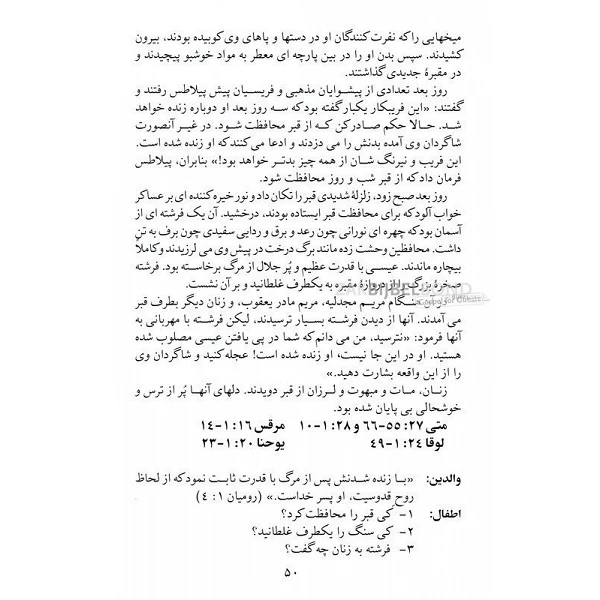 میخهایی راکه نفرت‌کنندگان او در دستها و پاهای وی‌کوبیده بودند، بیرون
کشیدند. سپس بدن او را در بین پارچه ای معطر به مواد خوشبو پیچیدند و
در مقبرهٔ جدیدی‌گذاشتند.
روز بعد تعدادی از پیشوایان مذهبی و فریسیان پیش پیلاطس رفتند و
گفتند: «این فریبکار یکبار گفته بودکه سه روز بعد او دوباره زنده خواهد
شد. حالا حکم صادرکن که از قبر محافظت شود. در غیر آنصورت
شاگردان وی آمده بدنش را می دزدند و ادعا می‌کنندکه او زنده شده است.
این فریب و نیرنگ شان از همه چیز بدتر خواهد بود!» بنابران، پیلاطس
فرمان دادکه از قبر شب و روز محافظت شود.
روز بعد صبح زود، زلزلهٔ شدیدی قبر را تکان داد و نور خیره‌کننده ای بر عساکر
خواب آلودکه برای محافظت قبر ایستاده بودند، درخشید. آن یک فرشته ای از
آسمان بودکه چهره ای نورانی چون رعد و برق و ردایی سفیدی چون برف به تن
داشت. محافظین وحشت زده مانند برگ درخت در پیش وی می لرزیدند و کاملاً
بیچاره ماندند. عیسی با قدرت عظیم و پُر جلال از مرگ برخاسته بود. فرشته
صخرهٔ بزرگ را از دروازهٔ مقبره به یکطرف غلطانید و بر آن نشست.
هنگام مریم مجدلیه، مریم مادر یعقوب، و زنان دیگر بطرف قبر
می آمدند. آنها از دیدن فرشته بسیار ترسیدند، لیکن فرشته با مهربانی به
آنها فرمود: «نترسید، من می دانم‌که شما در پی یافتن عیسی مصلوب شده
هستید. او در این جا نیست، او زنده شده است! عجله‌کنید و شاگردان وی
را از این واقعه بشارت دهید.»
زنان، مات و مبهوت و لرزان از قبر دویدند. دلهای آنها پُر از ترس و
خوشحالی بی پایان شده بود.
متی ۲۷: ۵۵-۶۶ و ۲۸: ۱-۱۰ مرقس ۱۶: ۱-۱۴
لوقا ۲۴: ۱-۴۹ یوحنا ۲۰: ۱-۲۳
والدین: «با زنده شدنش پس از مرگ با قدرت ثابت نمودکه از لحاظ
روح قدوسیت، او پسر خداست.» (رومیان ۱: ۴)
اطفال: ۱- کی قبر را محافظت‌کرد؟
۲- کی سنگ را یکطرف غلطانید؟
۳- فرشته به زنان چه‌گفت؟
۵۰